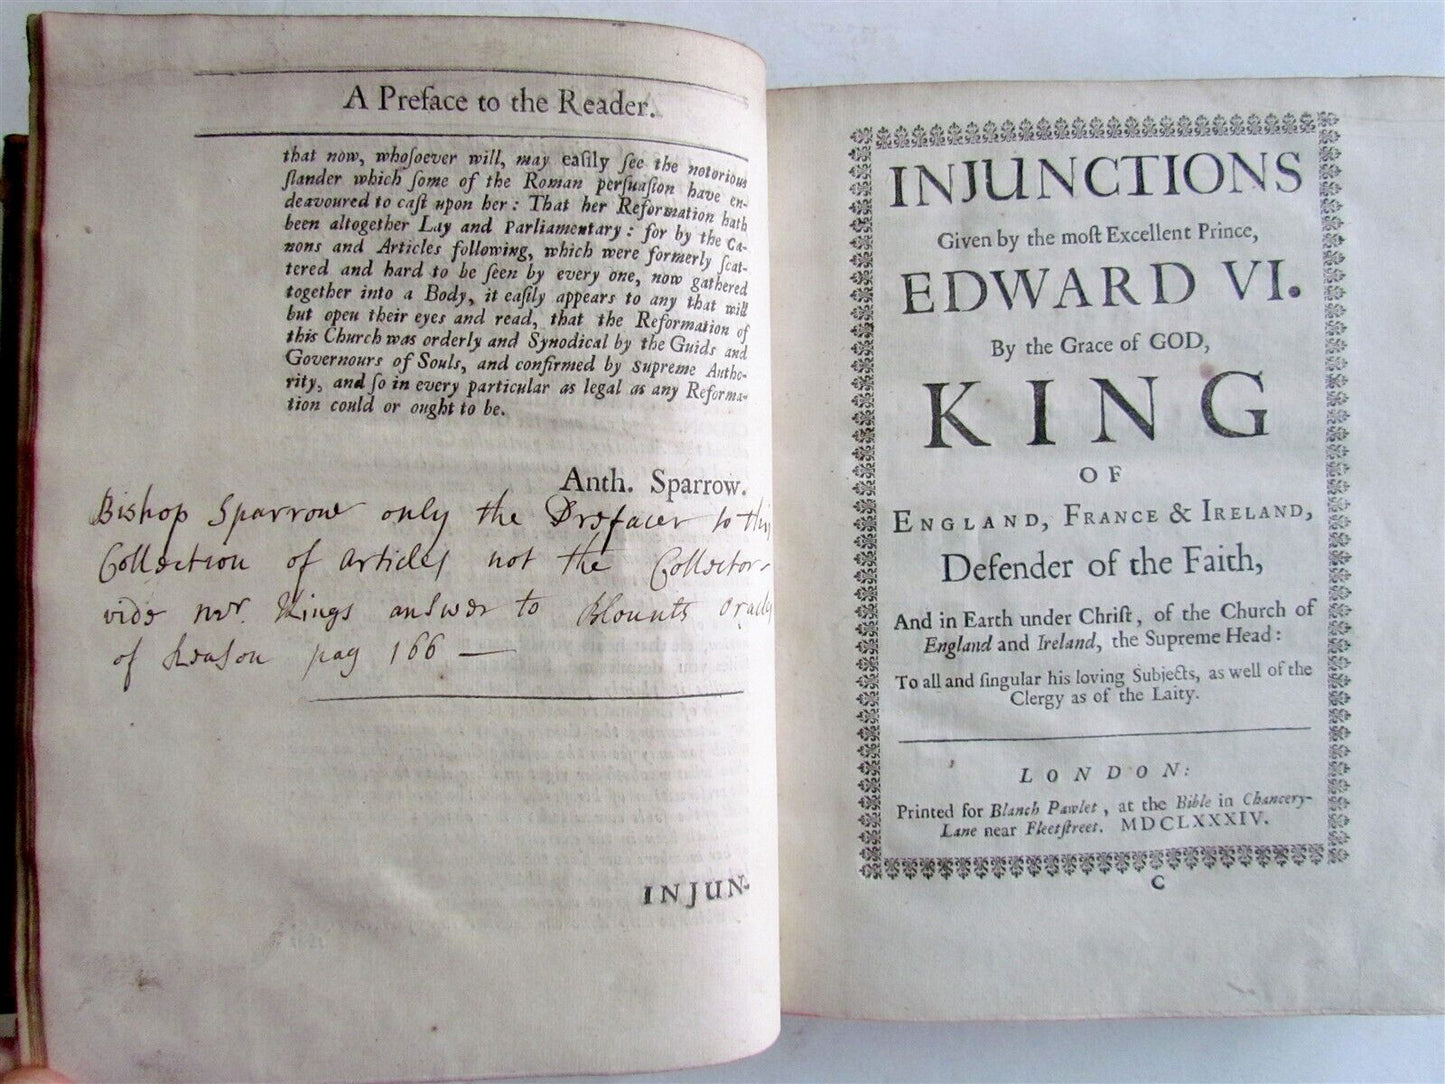 A Preface to the Reader.
that now, whoſoever will, may eaſily ſee the notorious
ſlander which ſome of the Roman perſuaſion have en-
deavoured to caſt upon her: That her Reformation hath
been altogether Lay and Parliamentary: for by the Ca-
nons and Articles following, which were formerly ſcat-
tered and hard to be ſeen by every one, now gathered
together into a Body, it eaſily appears to any that will
but open their eyes and read, that the Reformation of
this Church was orderly and Synodical by the Guids and
Governours of Souls, and confirmed by Supreme Autho-
rity, and ſo in every particular as legal as any Reforma-
tion could or ought to be.
Anth. Sparrow.
Bishop Sparrow only the Prefacer to this
Collection of Articles not the Collector -
vide Mr. Kings answer to Blounts Oracles
of Reason pag 166 —
INJUN-
INJUNCTIONS
Given by the moſt Excellent Prince,
EDWARD VI.
By the Grace of GOD,
KING
OF
ENGLAND, FRANCE & IRELAND,
Defender of the Faith,
And in Earth under Chriſt, of the Church of
England and Ireland, the Supreme Head:
To all and ſingular his loving Subjects, as well of the
Clergy as of the Laity.
LONDON:
Printed for Blanch Pawlet, at the Bible in Chancery-
Lane near Fleetſtreet. MDCLXXXIV.
C